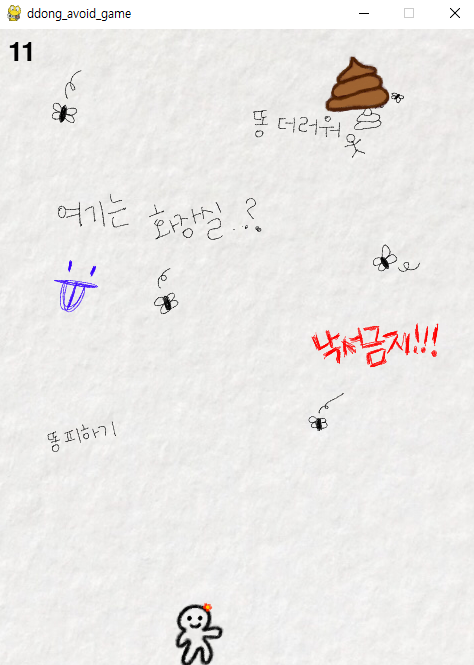 ddong_avoid_game
11
똥 더러워
여기는 화장실..?
낙서금지!!!
똥피하기